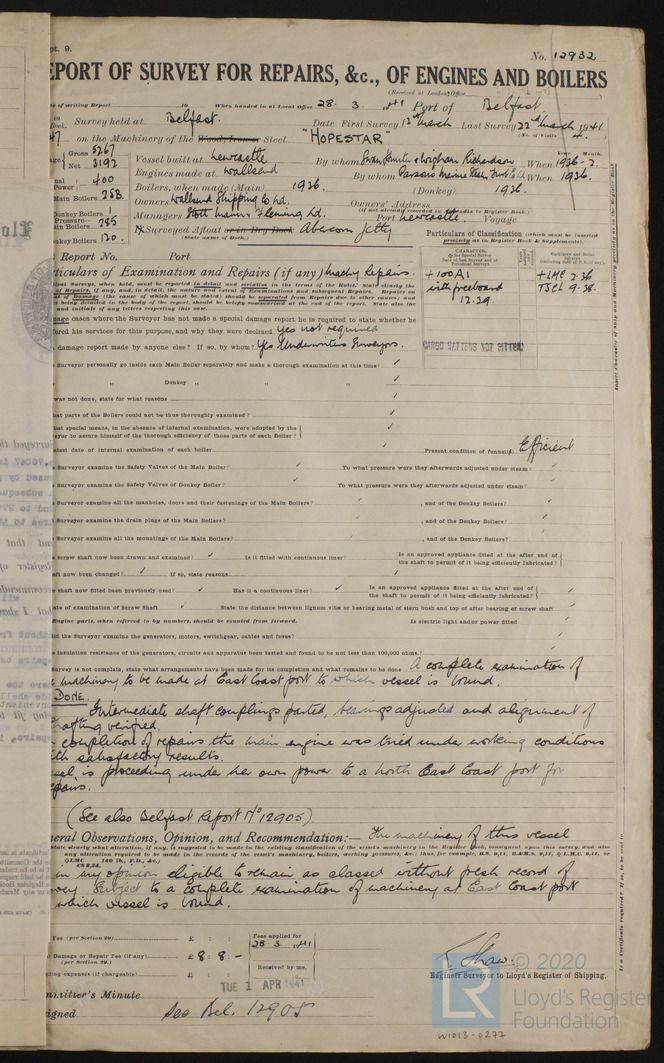 pt. 9.
No. 12932
EPORT OF SURVEY FOR REPAIRS, &c., OF ENGINES AND BOILERS
(Received at London Office
te of writing Report 19 When handed in at Local Office 28. 3. 1941 Port of Belfast.
Survey held at Belfast. Date First Survey 12th March Last Survey 22nd March 1941
(No. of Visits 4.
on the Machinery of the Wood, Iron or Steel "HOPESTAR"
Gross 5267
Net 3192
Vessel built at Newcastle By whom Swan, Hunter & Wigham Richardson When 1936-2.
Engines made at Wallsend By whom Parsons Marine Steam Turb. Co. Ltd. When 1936.
Power: 400
Boilers, when made (Main) 1936. (Donkey) 1936.
Main Boilers 2SB.
Owners Wallsend Shipping Co. Ld. Owners' Address
(if not already recorded in Appendix to Register Book.)
Donkey Boilers 1
Managers Stott Mann & Fleming Ld. Port Newcastle. Voyage
Pressure—
in Boilers 225
If Surveyed Afloat or in Dry Dock Abercorn Jetty
(State name of Dock.)
nkey Boilers 120.
Particulars of Classification (which must be inserted
precisely as in Register Book & Supplements).
Report No. Port
ticulars of Examination and Repairs (if any) Machy Repairs.
+100A1
with freeboard
12.39.
+LMC 2.36
TSCL 9.38.
CARGO BATTENS NOT FITTED
age cases where the Surveyor has not made a special damage report he is required to state whether he
ered his services for this purpose, and why they were declined Yes not required
damage report made by anyone else? If so, by whom? Yes Underwriters Surveyors.
Surveyor personally go inside each Main Boiler separately and make a thorough examination at this time? ✓
" " Donkey " " " " ✓
was not done, state for what reasons ✓
hat parts of the Boilers could not be thus thoroughly examined? ✓
hat special means, in the absence of internal examination, were adopted by the
eyor to assure himself of the thorough efficiency of those parts of each Boiler? ✓
atest date of internal examination of each boiler ✓ Present condition of funnel(s) Efficient
Surveyor examine the Safety Valves of the Main Boiler? ✓ To what pressure were they afterwards adjusted under steam? ✓
Surveyor examine the Safety Valves of Donkey Boiler? ✓ To what pressure were they afterwards adjusted under steam? ✓
Surveyor examine all the manholes, doors and their fastenings of the Main Boilers? ✓, and of the Donkey Boilers? ✓
Surveyor examine the drain plugs of the Main Boilers? ✓, and of the Donkey Boilers? ✓
Surveyor examine all the mountings of the Main Boilers? ✓, and of the Donkey Boilers? ✓
screw shaft now been drawn and examined? ✓ Is it fitted with continuous liner? ✓ Is an approved appliance fitted at the after end of
the shaft to permit of it being efficiently lubricated? ✓
aft now been changed? ✓ If so, state reasons
shaft now fitted been previously used? ✓ Has it a continuous liner? ✓ Is an approved appliance fitted at the after end of
the shaft to permit of it being efficiently lubricated? ✓
ate of examination of Screw Shaft ✓ State the distance between lignum vitæ or bearing metal of stern bush and top of after bearing of screw shaft
Engine parts, when referred to by numbers, should be counted from forward. Is electric light and/or power fitted
id the Surveyor examine the generators, motors, switchgear, cables and fuses?
e insulation resistance of the generators, circuits and apparatus been tested and found to be not less than 100,000 ohms?
Survey is not complete, state what arrangements have been made for its completion and what remains to be done A complete examination of
machinery to be made at East Coast port to which vessel is bound.
DONE.
Intermediate shaft couplings parted, bearings adjusted and alignment of
shafting verified.
completion of repairs the main engine was tried under working conditions
with satisfactory results.
sel is proceeding under her own power to a North East Coast port for
epairs.
(See also Belfast Report No 12905).
eral Observations, Opinion, and Recommendation:— The machinery of this vessel
in my opinion eligible to remain as classed without fresh record of
vey Subject to a complete examination of machinery at East Coast port
which vessel is bound.
Fee (per Section 29) £ : :
Damage or Repair Fee (if any) £ 8 : 8 : -
(per Section 29.)
lling expenses (if chargeable) £ : :
Fees applied for
28.3.1941
Received by me,
Shaw.
Engineer Surveyor to Lloyd's Register of Shipping.
mmittee's Minute TUE 1 APR 1941
signed See Bel. 12905
© 2020
LR
Lloyd's Register
Foundation
W1013-0277